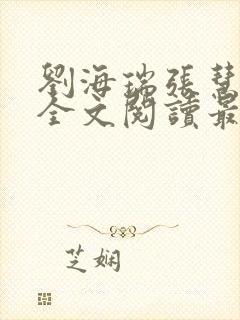 劉海瑞張慧
全文閱讀最
芝嫻